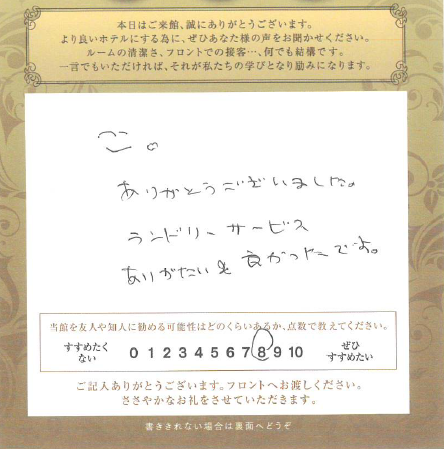 本日はご来館、誠にありがとうございます。
より良いホテルにする為に、ぜひあなた様の声をお聞かせください。
ルームの清潔さ、フロントでの接客…、何でも結構です。
一言でもいただければ、それが私たちの学びとなり励みになります。
ありがとうございました。
ランドリーサービス
ありがたい 良かったですよ。
当館を友人や知人に勧める可能性はどのくらいあるか、点数で教えてください。
すすめたくない 0 1 2 3 4 5 6 7 8 9 10 ぜひすすめたい
ご記入ありがとうございます。フロントへお渡しください。
ささやかなお礼をさせていただきます。
書ききれない場合は裏面へどうぞ